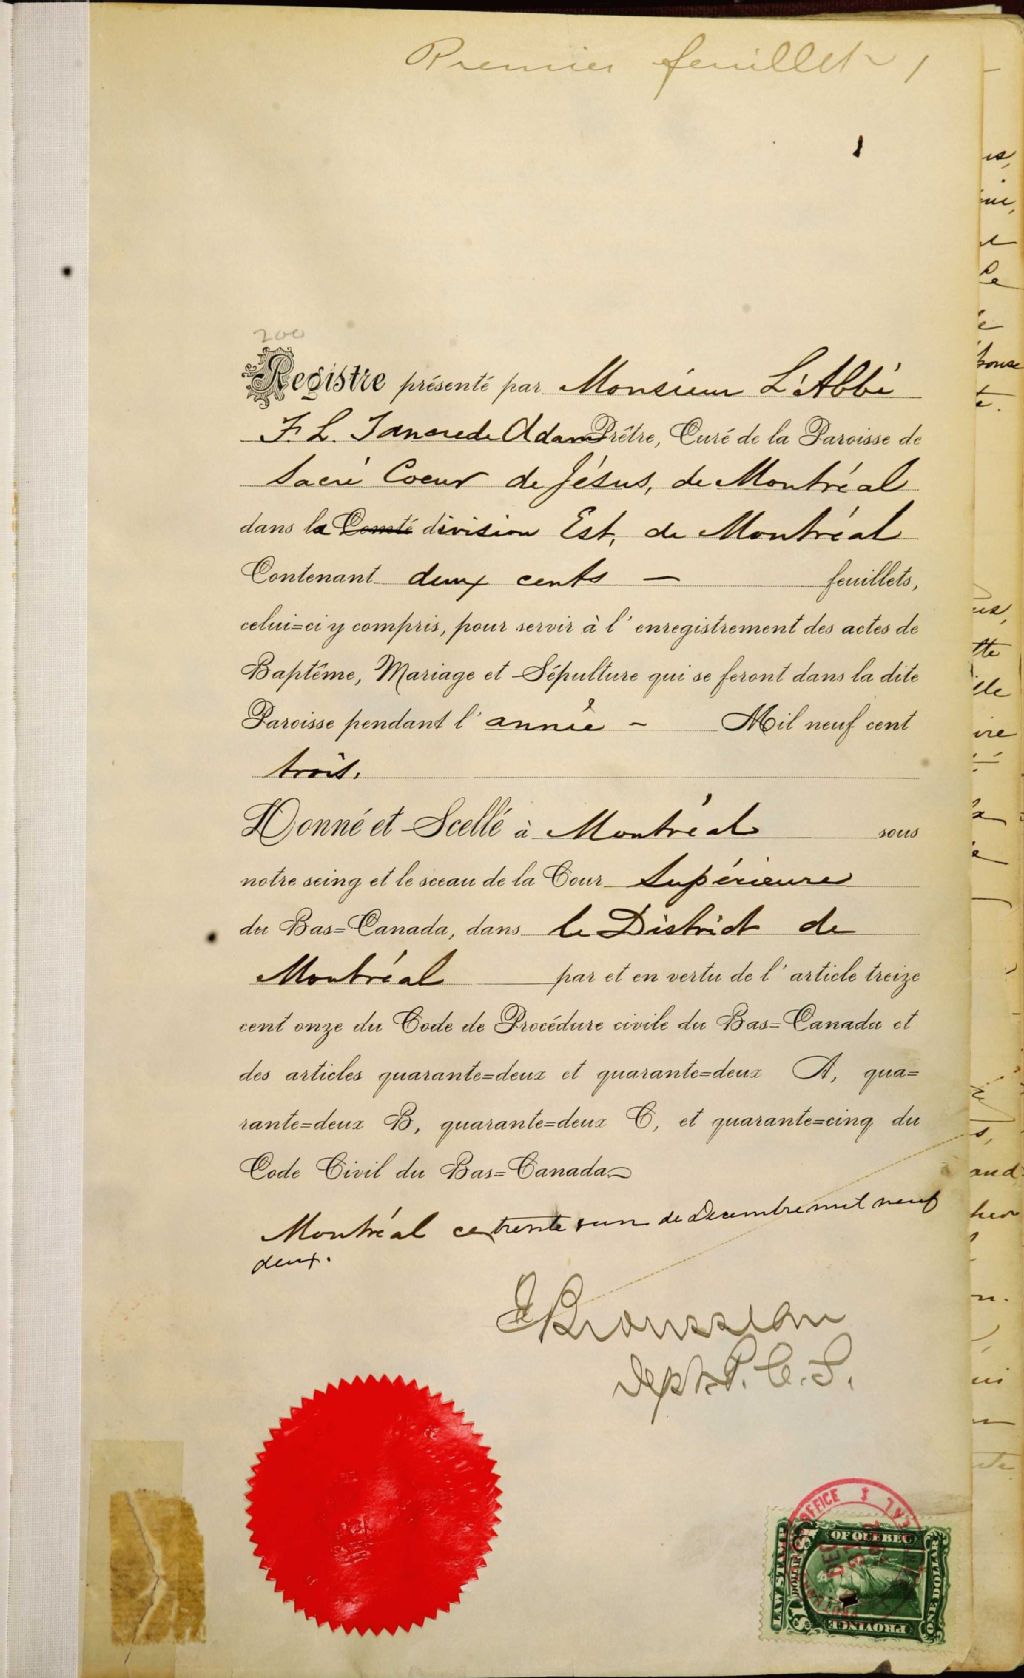 Premier feuillet 1
1
200
Registre présenté par Monsieur L'Abbé
F L. Tancrede Adam Prêtre, Curé de la Paroisse de
Sacré Coeur de Jésus, de Montréal
dans la Comté division Est, de Montréal
Contenant deux cents — feuillets,
celui=ci y compris, pour servir à l'enregistrement des actes de
Baptême, Mariage et Sépulture qui se feront dans la dite
Paroisse pendant l'année - Mil neuf cent
trois.
Donné et Scellé à Montréal sous
notre seing et le sceau de la Cour Supérieure
du Bas=Canada, dans le District de
Montréal par et en vertu de l'article treize
cent onze du Code de Procédure civile du Bas=Canada et
des articles quarante=deux et quarante=deux A, qua=
rante=deux B, quarante=deux C, et quarante=cinq du
Code Civil du Bas=Canada
Montréal ce trente & un de Decembre mil neuf
deux.
Brousseau
Dept. P. C. S.
OFFICE
DEC
LAW STAMP
OF QUEBEC
PROVINCE
ONE DOLLAR
DOLLAR
$1